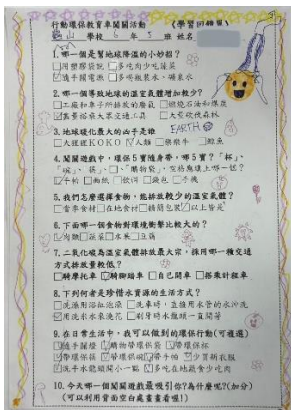 行動環保教育車闖關活動 《學習回饋單》
山 學校 6 年 5 班 姓名
1.哪一個是幫地球降溫的小妙招?
□用塑膠袋裝 □多吃肉少吃蔬菜
☑隨手關電源 □多喝瓶裝水、礦泉水
2.哪一個導致地球的溫室氣體增加較少?
□工廠和車子所排放的廢氣 □燃燒石油和煤炭
☑搭乘大眾交通工具 □大量砍伐森林
3.地球暖化最大的凶手是誰 EARTH
□大猩猩KOKO ☑人類 □樂樂牛 □鯨魚
4.闖關遊戲中,環保5寶隨身帶,哪5寶?「杯」、
「碗」、「筷」、「購物袋」,空格應填上哪一個?
☑手帕 □面紙 □飲料 □錢包 □手機
5.我們怎麼選擇食物,能排放較少的溫室氣體?
□當季食材 □在地食材 □精簡包裝 ☑以上皆是
6.下面哪一個食物對環境衝擊比較大的?
☑肉類 □蔬菜 □水果 □豆類
7.二氧化碳為溫室氣體排放最大宗,採用哪一種交通
方式排放量較低?
□騎摩托車 ☑騎腳踏車 □自己開車 □搭乘計程車
8.下列何者是珍惜水資源的生活方式?
□洗澡用浴缸泡澡 □洗車時,直接用水管的水沖洗
☑用洗米水來澆花 □刷牙時水龍頭一直開著
9.在日常生活中,我可以做到的環保行動(可複選)
☑隨手關燈 ☑購物帶環保袋 ☑帶環保杯
☑帶環保筷 ☑帶環保碗 ☑帶手帕 ☑少買新衣服
☑洗手水龍頭開小一點 ☑多吃在地最食少吃肉
10.今天哪一個闖關遊戲最吸引你?為什麼呢?(加分)
(可以利用背面空白處畫畫看喔!)